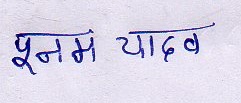 पूनम यादव